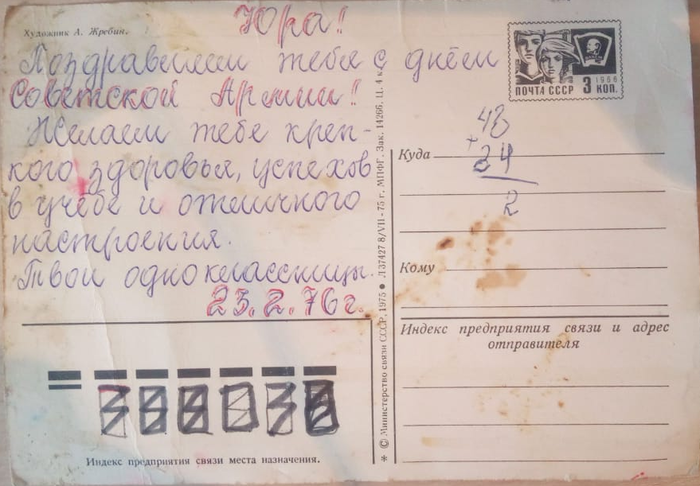 Художник А. Жребин.
Юра!
Поздравляем тебя с днём
Советской Армии!
Желаем тебе креп-
кого здоровья, успехов
в учёбе и отличного
настроения.
Твои одноклассницы.
23.2.76 г.
Индекс предприятия связи места назначения.
* © Министерство связи СССР, 1975 ● Л 37427 8/VII-75 г. МПФГ. Зак. 14266. Ц. 4 к.
1966
ПОЧТА СССР 3 КОП.
48
+
24
2
Куда
Кому
Индекс предприятия связи и адрес
отправителя